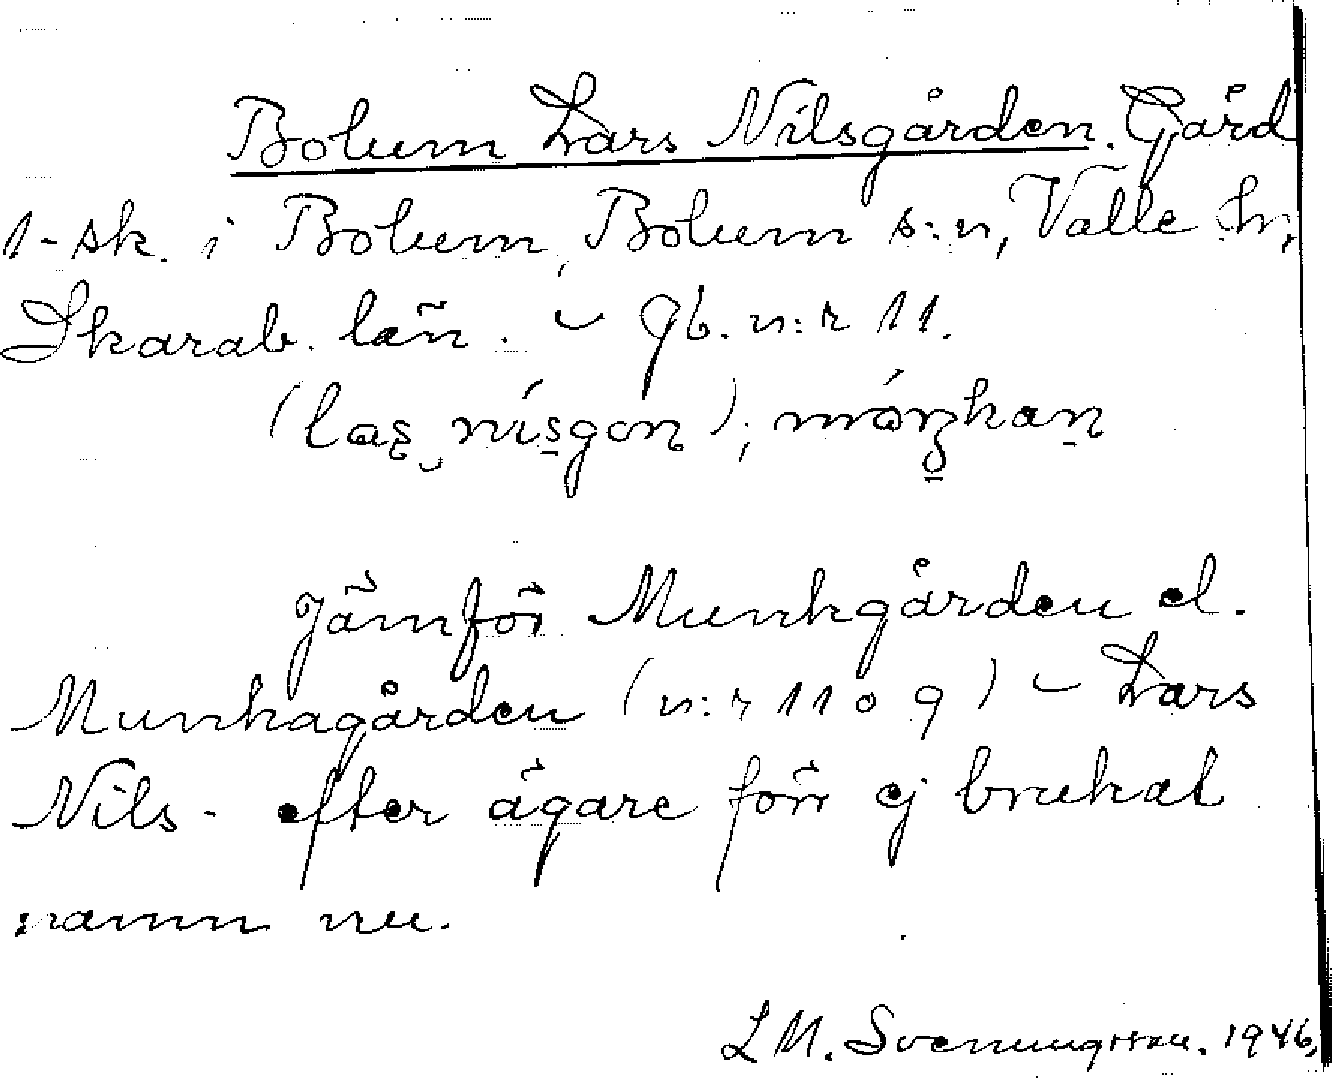 Bolum Lars Nilsgården. Gård
1-sk. i Bolum, Bolum s:n, Valle hr,
Skarab. län. – jb. n:r 11.
(las nísgɔn);
Jämför Munkgården el.
Munkagården (n:r 11 o 9) – Lars
Nils - efter ägare förr ej brukat
namn nu.
L M. Svenungsson. 1946,